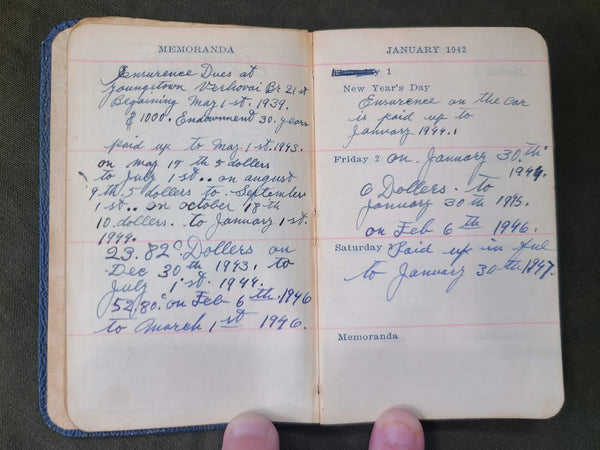 MEMORANDA
Ensurence Dues at
youngstown Verhovai Br 21st
Begaining May 1st. 1939.
$1000. Endowment 30. years
paid up to May 1st. 1943.
on May 17th 5 dollers
to July 1st.. on august
9th. 5 dollers to. September
1st.. on october 18th
10. dollers. to January 1st.
1944.
23.82¢ Dollers on
Dec 30th 1943. to
July 1st. 1944.
52.80¢ on Feb 6th 1946
to March 1st 1946.
JANUARY 1942
1
New Year's Day
Ensurence on the car
is paid up to
January 1944.
Friday 2 on. January 30.th
1944.
6 Dollers. to
January 30th 1945.
on Feb 6th 1946.
Saturday 3 Paid up in ful
to January 30th 1947.
Memoranda